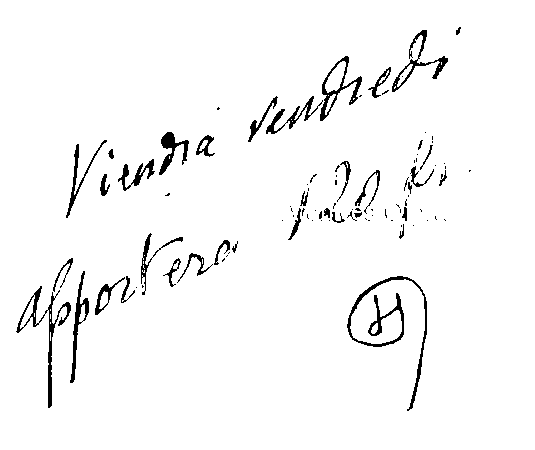 Viendra vendredi
apportera fr.